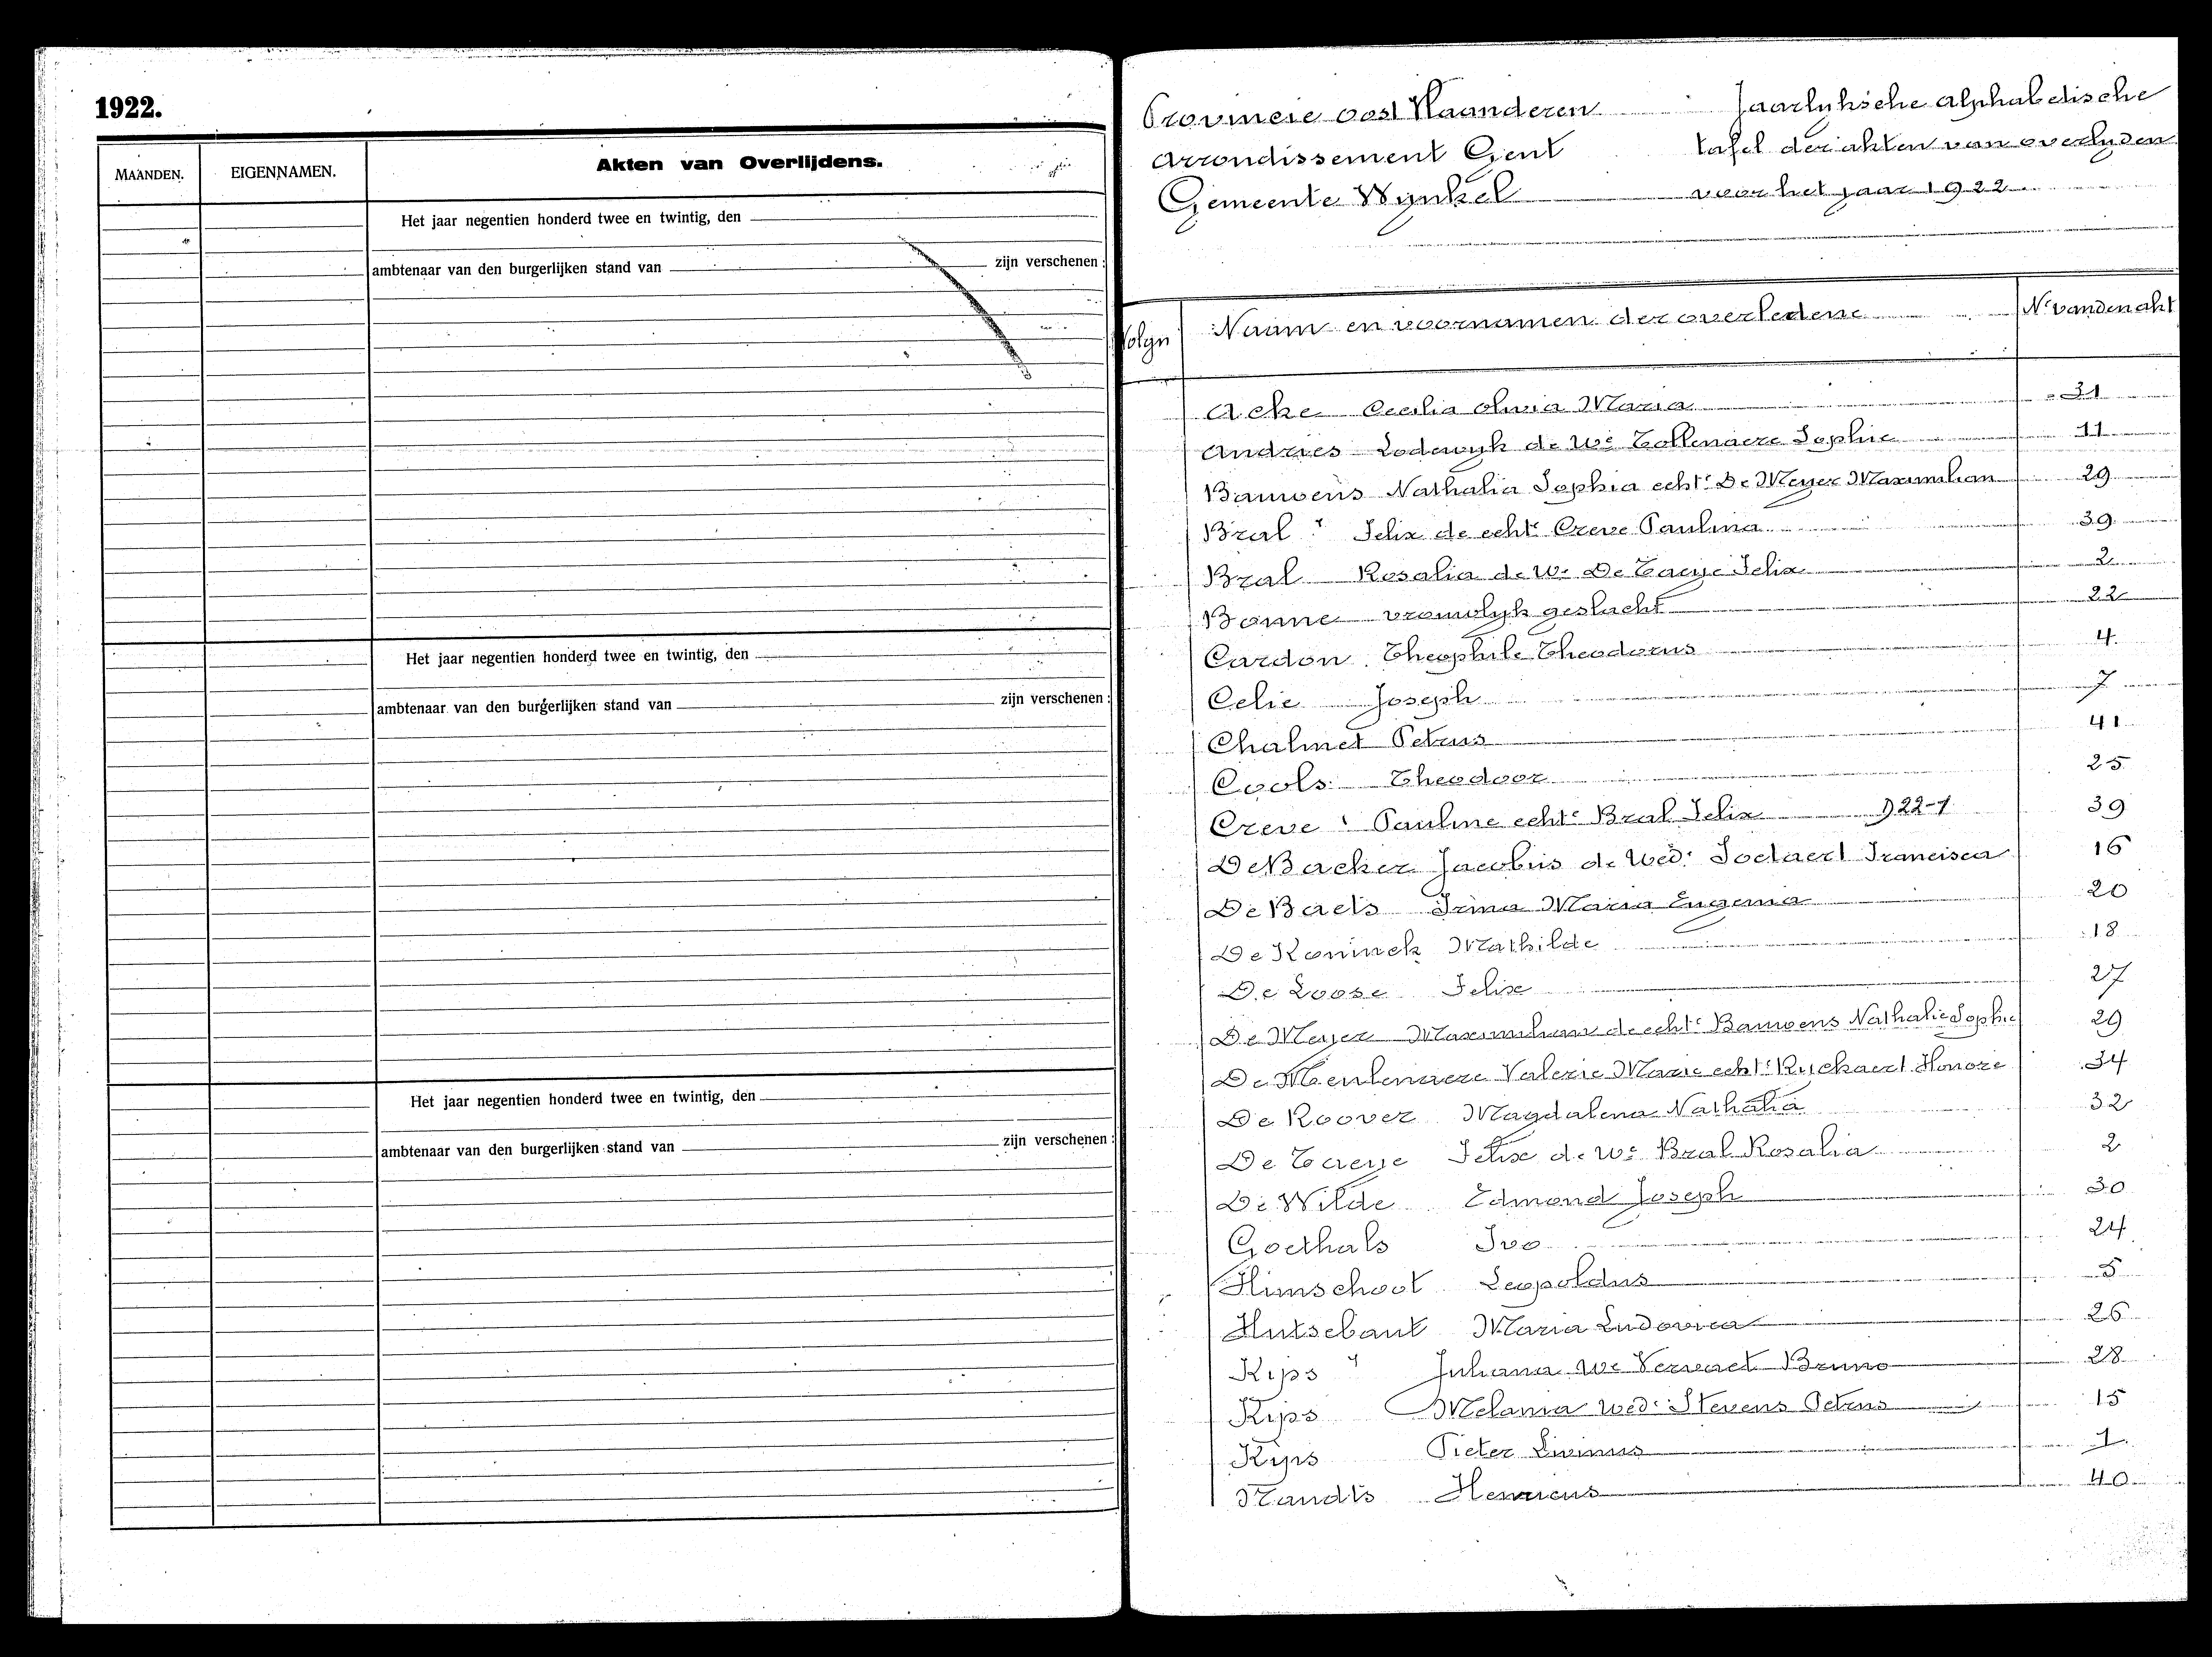 1922.
MAANDEN.
EIGENNAMEN.
Akten van Overlijdens.
Het jaar negentien honderd twee en twintig, den
ambtenaar van den burgerlijken stand van zijn verschenen :
Het jaar negentien honderd twee en twintig, den
ambtenaar van den burgerlijken stand van zijn verschenen :
Het jaar negentien honderd twee en twintig, den
ambtenaar van den burgerlijken stand van zijn verschenen :
Provincie Oost Vlaanderen Jaarlyksche alphabetische
Arrondissement Gent tafel der akten van overlyden
Gemeente Wynkel voor het jaar 1922
Volgn Naam en voornamen der overledene Nr van den akt
Acke Cecilia Olivia Maria 31
Andries Lodewyk de We Tollenaere Sophie 11
Bauwens Nathalia Sophia echte De Meyer Maximilian 29
Bral Felix de echte Creve Paulina 39
Bral Rosalia de We De Taeye Felix 2
Bonne vrouwlyk geslacht 22
Cardon Theophile Theodorus 4
Celie Joseph 7
Chalmet Petrus 41
Cools Theodoor 25
Creve Pauline echte Bral Felix 922-1 39
De Backer Jacobus de Wed. Soetaert Francisca 16
De Baets Irma Maria Eugenia 20
De Koninck Mathilde 18
De Loose Felix 27
De Meyer Maximilian de echte Bauwens Nathalie Sophie 29
De Meulenaere Valerie Marie echte Ryckaert Honore 34
De Roover Magdalena Nathalia 32
De Taeye Felix de We Bral Rosalia 2
De Wilde Edmond Joseph 30
Goethals Ivo 24
Himschoot Leopoldus 5
Hutsebaut Maria Ludovica 26
Kips Juliana We Vervaet Bruno 28
Kips Melania Wed. Stevens Petrus 15
Kips Pieter Livinus 1
Nandts Henricus 40